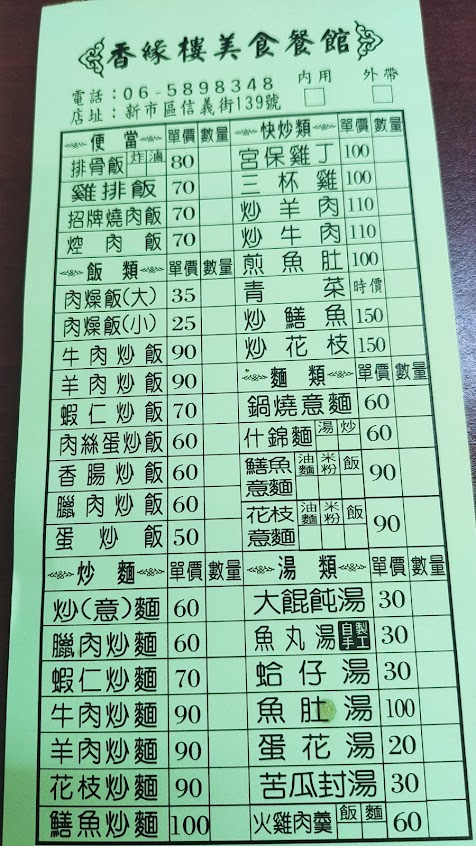 香緣樓美食餐館
電話：06-5898348
店址：新市區信義街139號
內用 外帶
便當 單價 數量
排骨飯 炸 滷 80
雞排飯 70
招牌燒肉飯 70
焢肉飯 70
飯類 單價 數量
肉燥飯(大) 35
肉燥飯(小) 25
牛肉炒飯 90
羊肉炒飯 90
蝦仁炒飯 70
肉絲蛋炒飯 60
香腸炒飯 60
臘肉炒飯 60
蛋炒飯 50
炒麵 單價 數量
炒(意)麵 60
臘肉炒麵 60
蝦仁炒麵 70
牛肉炒麵 90
羊肉炒麵 90
花枝炒麵 90
鱔魚炒麵 100
快炒類 單價 數量
宮保雞丁 100
三杯雞 100
炒羊肉 110
炒牛肉 110
煎魚肚 100
青菜 時價
炒鱔魚 150
炒花枝 150
麵類 單價 數量
鍋燒意麵 60
什錦麵 湯 炒 60
鱔魚意麵 油麵 米粉 飯 90
花枝意麵 油麵 米粉 飯 90
湯類 單價 數量
大餛飩湯 30
魚丸湯 手工自製 30
蛤仔湯 30
魚肚湯 100
蛋花湯 20
苦瓜封湯 30
火雞肉羹 飯 麵 60